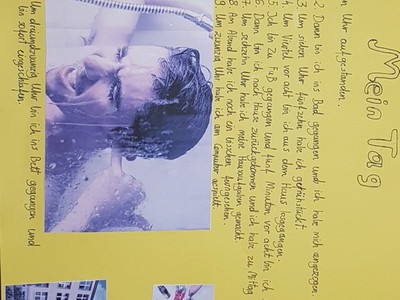 Mein Tag
n Uhr aufgestanden.
2 Dann bin ich ins Bad gegangen und ich habe mich angezogen
3. Um sieben Uhr fünfzehn habe ich gefrühstückt.
4. Um Viertel vor acht bin ich aus dem Haus losgegangen.
5. Ich bin zu Fuß gegangen und fünf Minuten vor acht bin ich
6. Dann bin ich nach Hause zurückgekommen und ich habe zu Mittag
7. Um sechzehn Uhr habe ich meine Hausaufgaben gemacht.
8. Am Abend habe ich noch ein bisschen ferngesehen.
9. Um zwanzig Uhr habe ich am Computer gespielt.
Um dreiundzwanzig Uhr bin ich ins Bett gegangen und
bin sofort eingeschlafen.